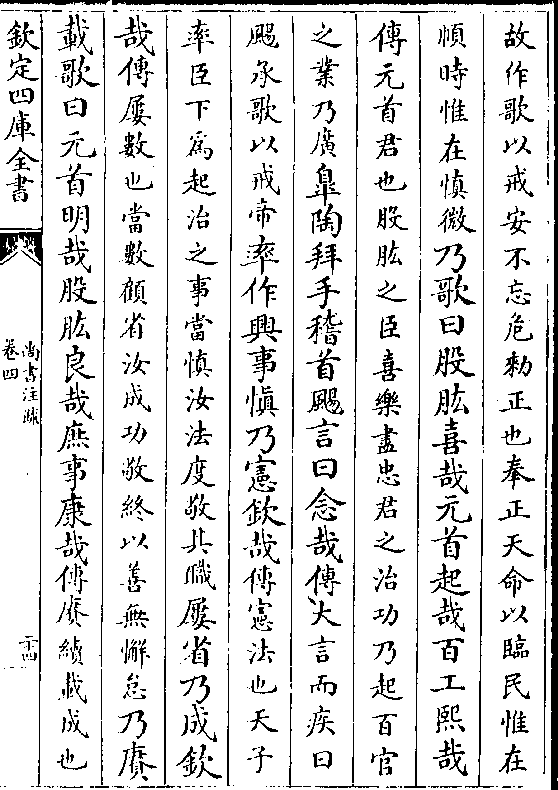 故作歌以戒安不忘危勑正也奉正天命以臨民惟在
順時惟在慎微乃歌曰股肱喜哉元首起哉百工熙哉
傳元首君也股肱之臣喜樂盡忠君之治功乃起百官
之業乃廣臯陶拜手稽首颺言曰念哉傳大言而疾曰
颺承歌以戒帝率作興事慎乃憲欽哉傳憲法也天子
率臣下爲起治之事當慎汝法度敬其職屢省乃成欽
哉傳屢數也當數顧省汝成功敬終以善無懈怠乃賡
載歌曰元首明哉股肱良哉庶事康哉傳賡續載成也
欽定四庫全書
尚書注疏
卷四
二十四